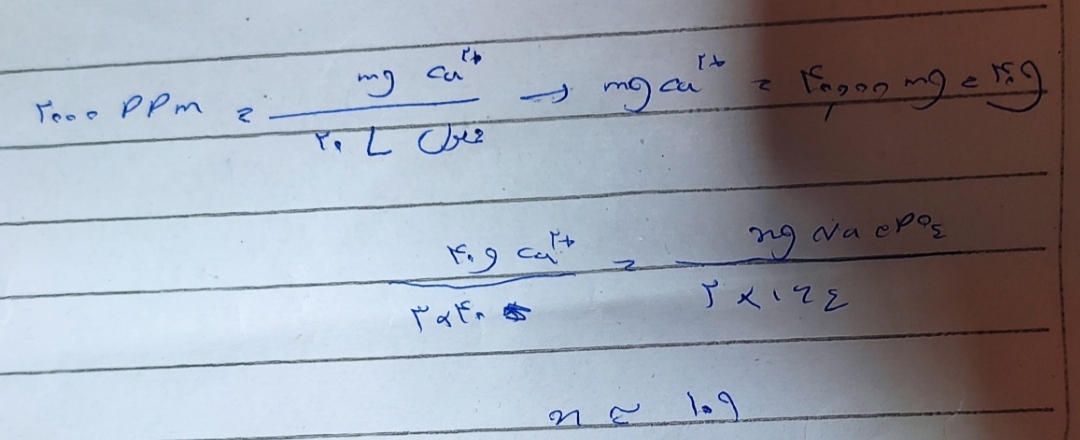 ۲۰۰۰ PPm = mg Ca²⁺ / ۲۰ L محلول → mg ca²⁺ = ۴۰,۰۰۰ mg = ۴۰g
۴۰g ca²⁺ / ۳×۴۰ = xg Na۳PO۴ / ۲×۱۶۴
x ≈ ۱۰۹